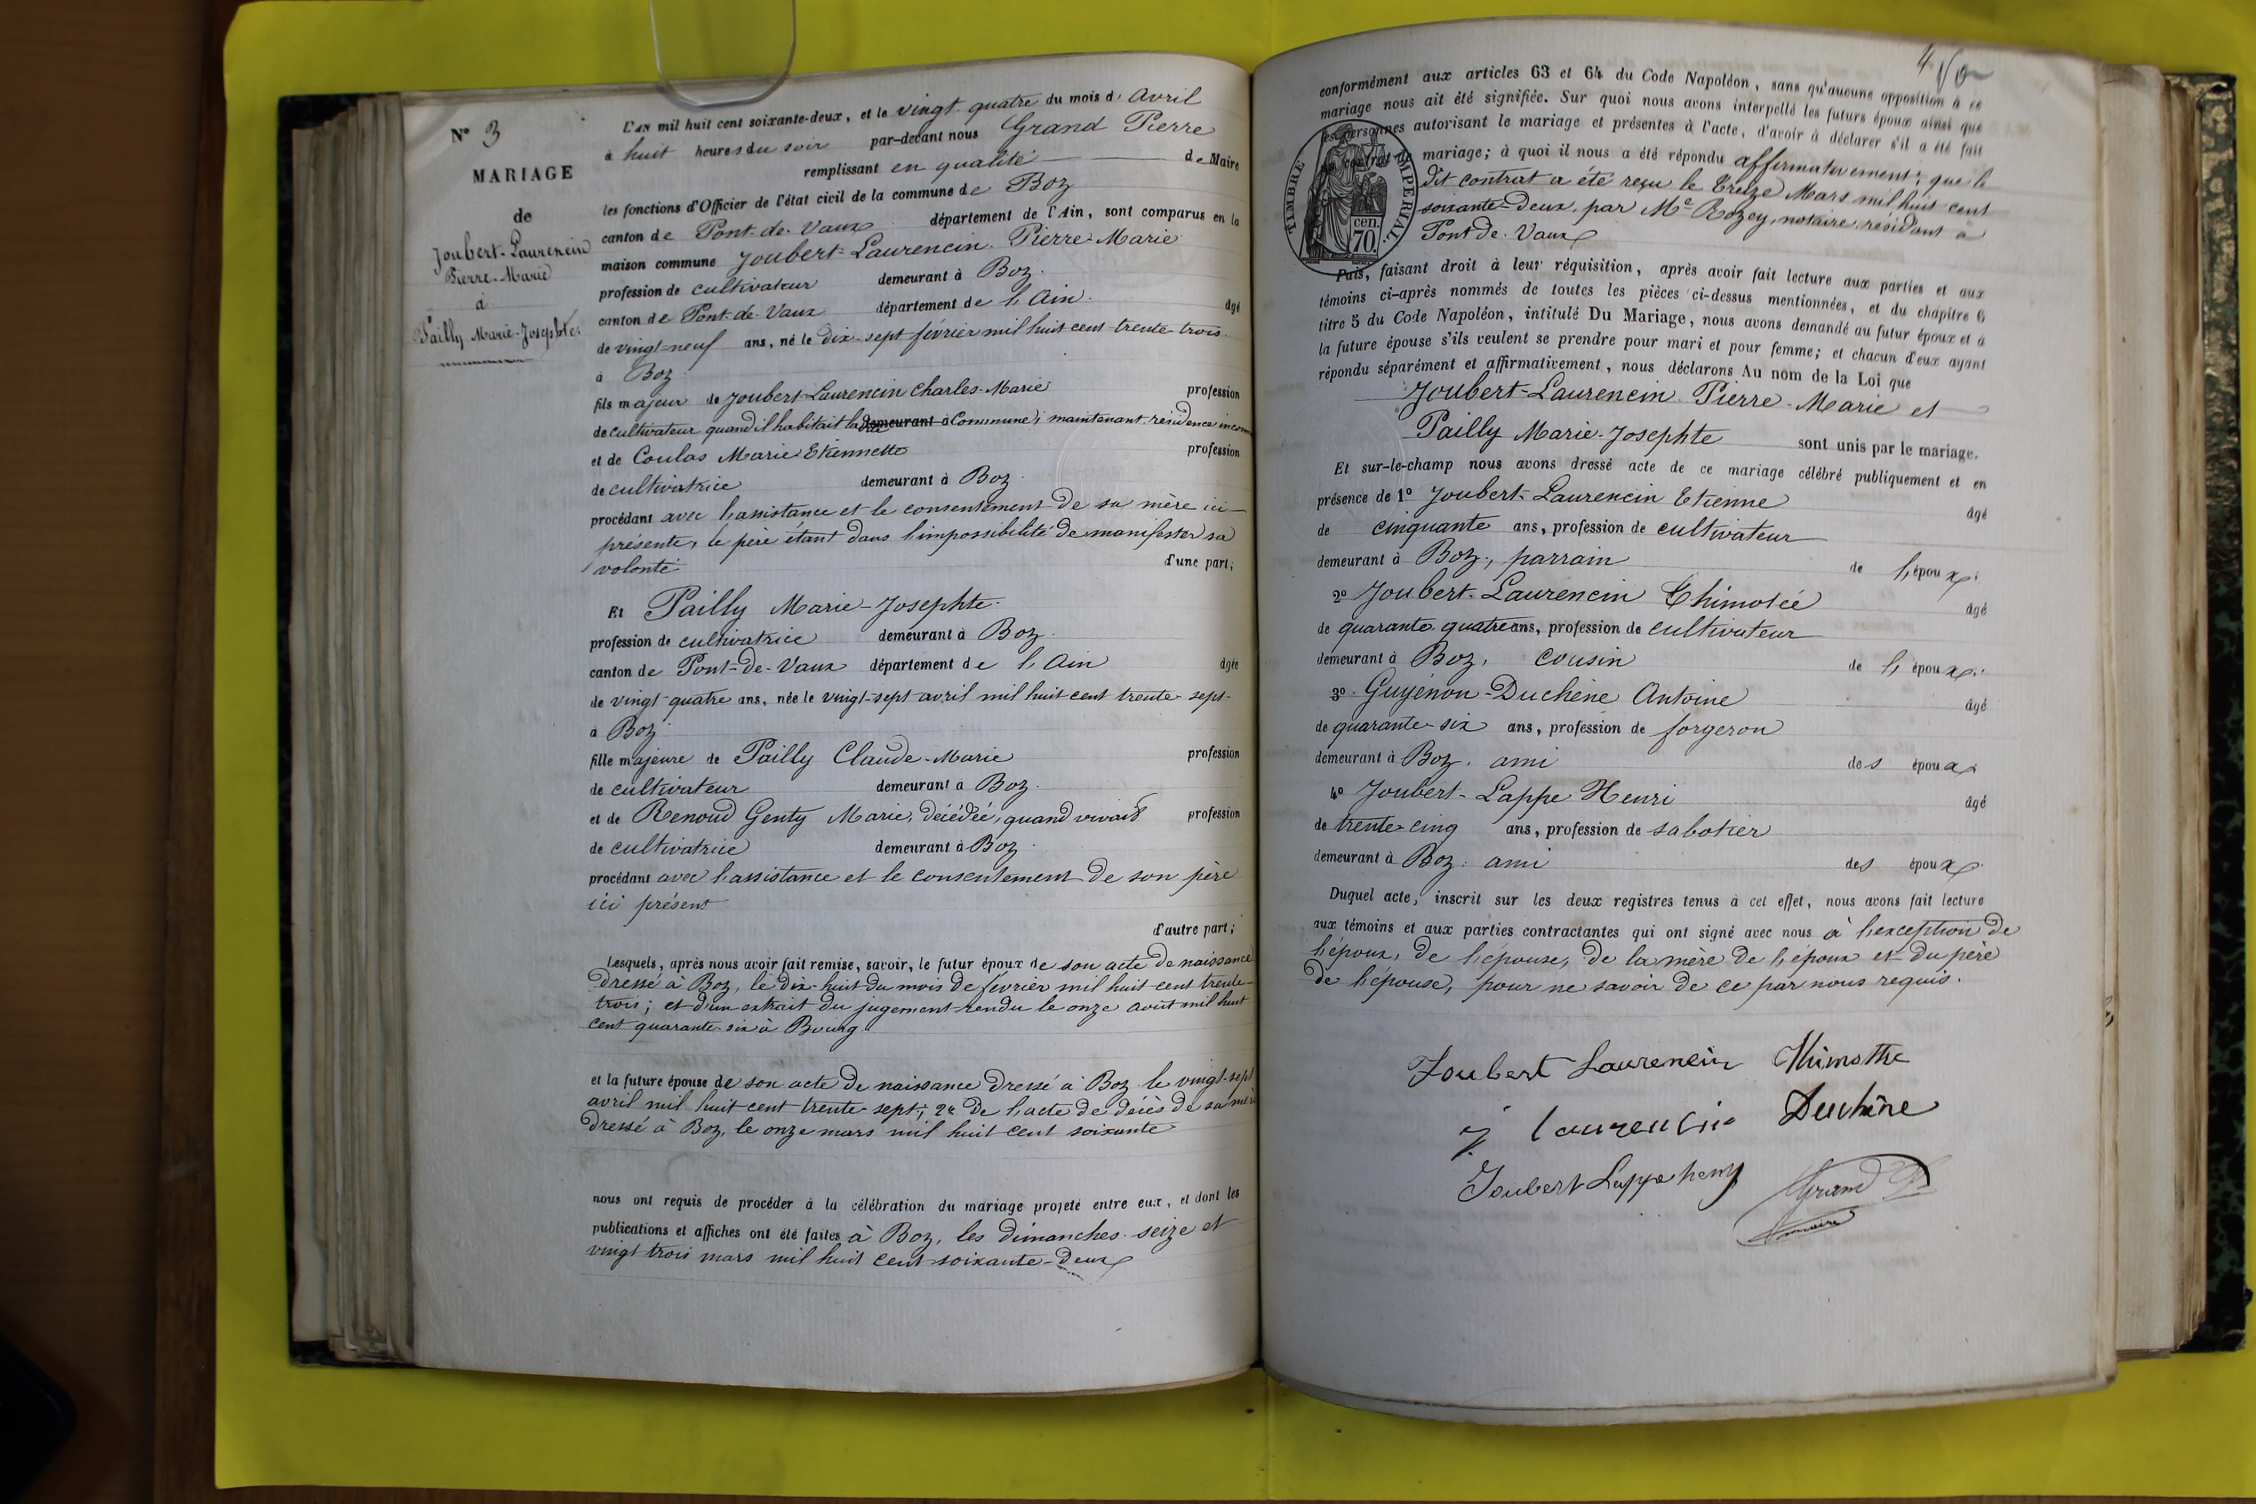 N° 3
MARIAGE
de
Joubert-Laurencin
Pierre-Marie
à
Pailly Marie-Josephte
L'AN mil huit cent soixante-deux, et le vingt-quatre du mois d'Avril
à huit heures du soir par-devant nous Grand Pierre
remplissant en qualité de Maire
les fonctions d'Officier de l'état civil de la commune de Boz
canton de Pont-de-Vaux département de l'Ain, sont comparus en la
maison commune Joubert-Laurencin Pierre-Marie
profession de cultivateur demeurant à Boz.
canton de Pont-de-Vaux département de l'Ain. âgé
de vingt-neuf ans, né le dix-sept février mil huit cent trente trois
à Boz
fils majeur de Joubert-Laurencin Charles-Marie profession
de cultivateur quand il habitait la dite demeurant à Commune; maintenant résidence
et de Coulas Marie Etiennette profession
de cultivatrice demeurant à Boz.
procédant avec l'assistance et le consentement de sa mère ici
présente, le père étant dans l'impossibilité de manifester sa
volonté d'une part;
Et Pailly Marie-Josephte.
profession de cultivatrice demeurant à Boz.
canton de Pont-de-Vaux département de l'Ain âgée
de vingt-quatre ans, née le vingt-sept avril mil huit cent trente-sept
à Boz
fille majeure de Pailly Claude-Marie profession
de cultivateur demeurant à Boz.
et de Renoud Genty Marie, décédée, quand vivait profession
de cultivatrice demeurant à Boz.
procédant avec l'assistance et le consentement de son père
ici présent
d'autre part;
Lesquels, après nous avoir fait remise, savoir, le futur époux de son acte de naissance
dressé à Boz, le dix-huit du mois de février mil huit cent trente
trois; et d'un extrait du jugement rendu le onze août mil huit
cent quarante-six à Bourg
et la future épouse de son acte de naissance dressé à Boz le vingt-sept
avril mil huit cent trente-sept; 2° de l'acte de décès de sa mère
dressé à Boz, le onze mars mil huit cent soixante
nous ont requis de procéder à la célébration du mariage projeté entre eux, et dont les
publications et affiches ont été faites à Boz, les dimanches seize et
vingt trois mars mil huit cent soixante-deux
4
conformément aux articles 63 et 64 du Code Napoléon, sans qu'aucune opposition à ce
mariage nous ait été signifiée. Sur quoi nous avons interpellé les futurs époux ainsi que
les personnes autorisant le mariage et présentes à l'acte, d'avoir à déclarer s'il a été fait
un contrat de mariage; à quoi il nous a été répondu affirmativement; que le
dit contrat a été reçu le treize Mars mil huit cent
soixante-deux, par Me Rozey, notaire résidant à
Pont de Vaux
TIMBRE IMPÉRIAL.
cen.
70.
Puis, faisant droit à leur réquisition, après avoir fait lecture aux parties et aux
témoins ci-après nommés de toutes les pièces ci-dessus mentionnées, et du chapitre 6
titre 5 du Code Napoléon, intitulé Du Mariage, nous avons demandé au futur époux et à
la future épouse s'ils veulent se prendre pour mari et pour femme; et chacun d'eux ayant
répondu séparément et affirmativement, nous déclarons Au nom de la Loi que
Joubert-Laurencin Pierre-Marie et
Pailly Marie-Josephte sont unis par le mariage.
Et sur-le-champ nous avons dressé acte de ce mariage célébré publiquement et en
présence de 1° Joubert-Laurencin Etienne âgé
de cinquante ans, profession de cultivateur
demeurant à Boz, parrain de l'époux;
2° Joubert-Laurencin Thimotée âgé
de quarante quatre ans, profession de cultivateur
demeurant à Boz, cousin de l'époux;
3° Guyénon-Duchêne Antoine âgé
de quarante-six ans, profession de forgeron
demeurant à Boz, ami des époux;
4° Joubert-Lappe Henri âgé
de trente-cinq ans, profession de sabotier
demeurant à Boz, ami des époux.
Duquel acte, inscrit sur les deux registres tenus à cet effet, nous avons fait lecture
aux témoins et aux parties contractantes qui ont signé avec nous à l'exception de
l'époux, de l'épouse, de la mère de l'époux et du père
de l'épouse, pour ne savoir de ce par nous requis.
Joubert Laurencin Thimothe
J laurencin Duchêne
Joubert Lappe henry
Grand P.
maire